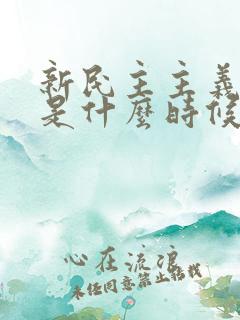 新民主主義
是什麼時候
心在流浪
未經同意禁止轉載